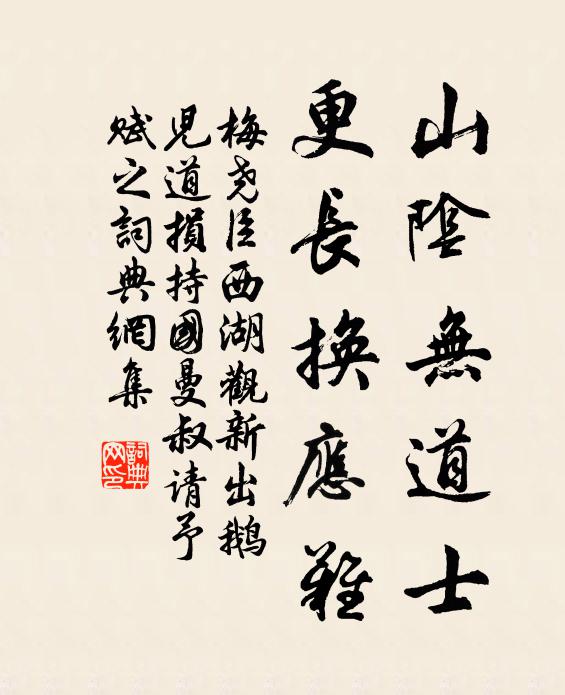 山陰無道士
更長換應難
梅堯臣西湖觀新出鵝
兒道損持國曼叔請予
賦之詞典網集
詞典網印